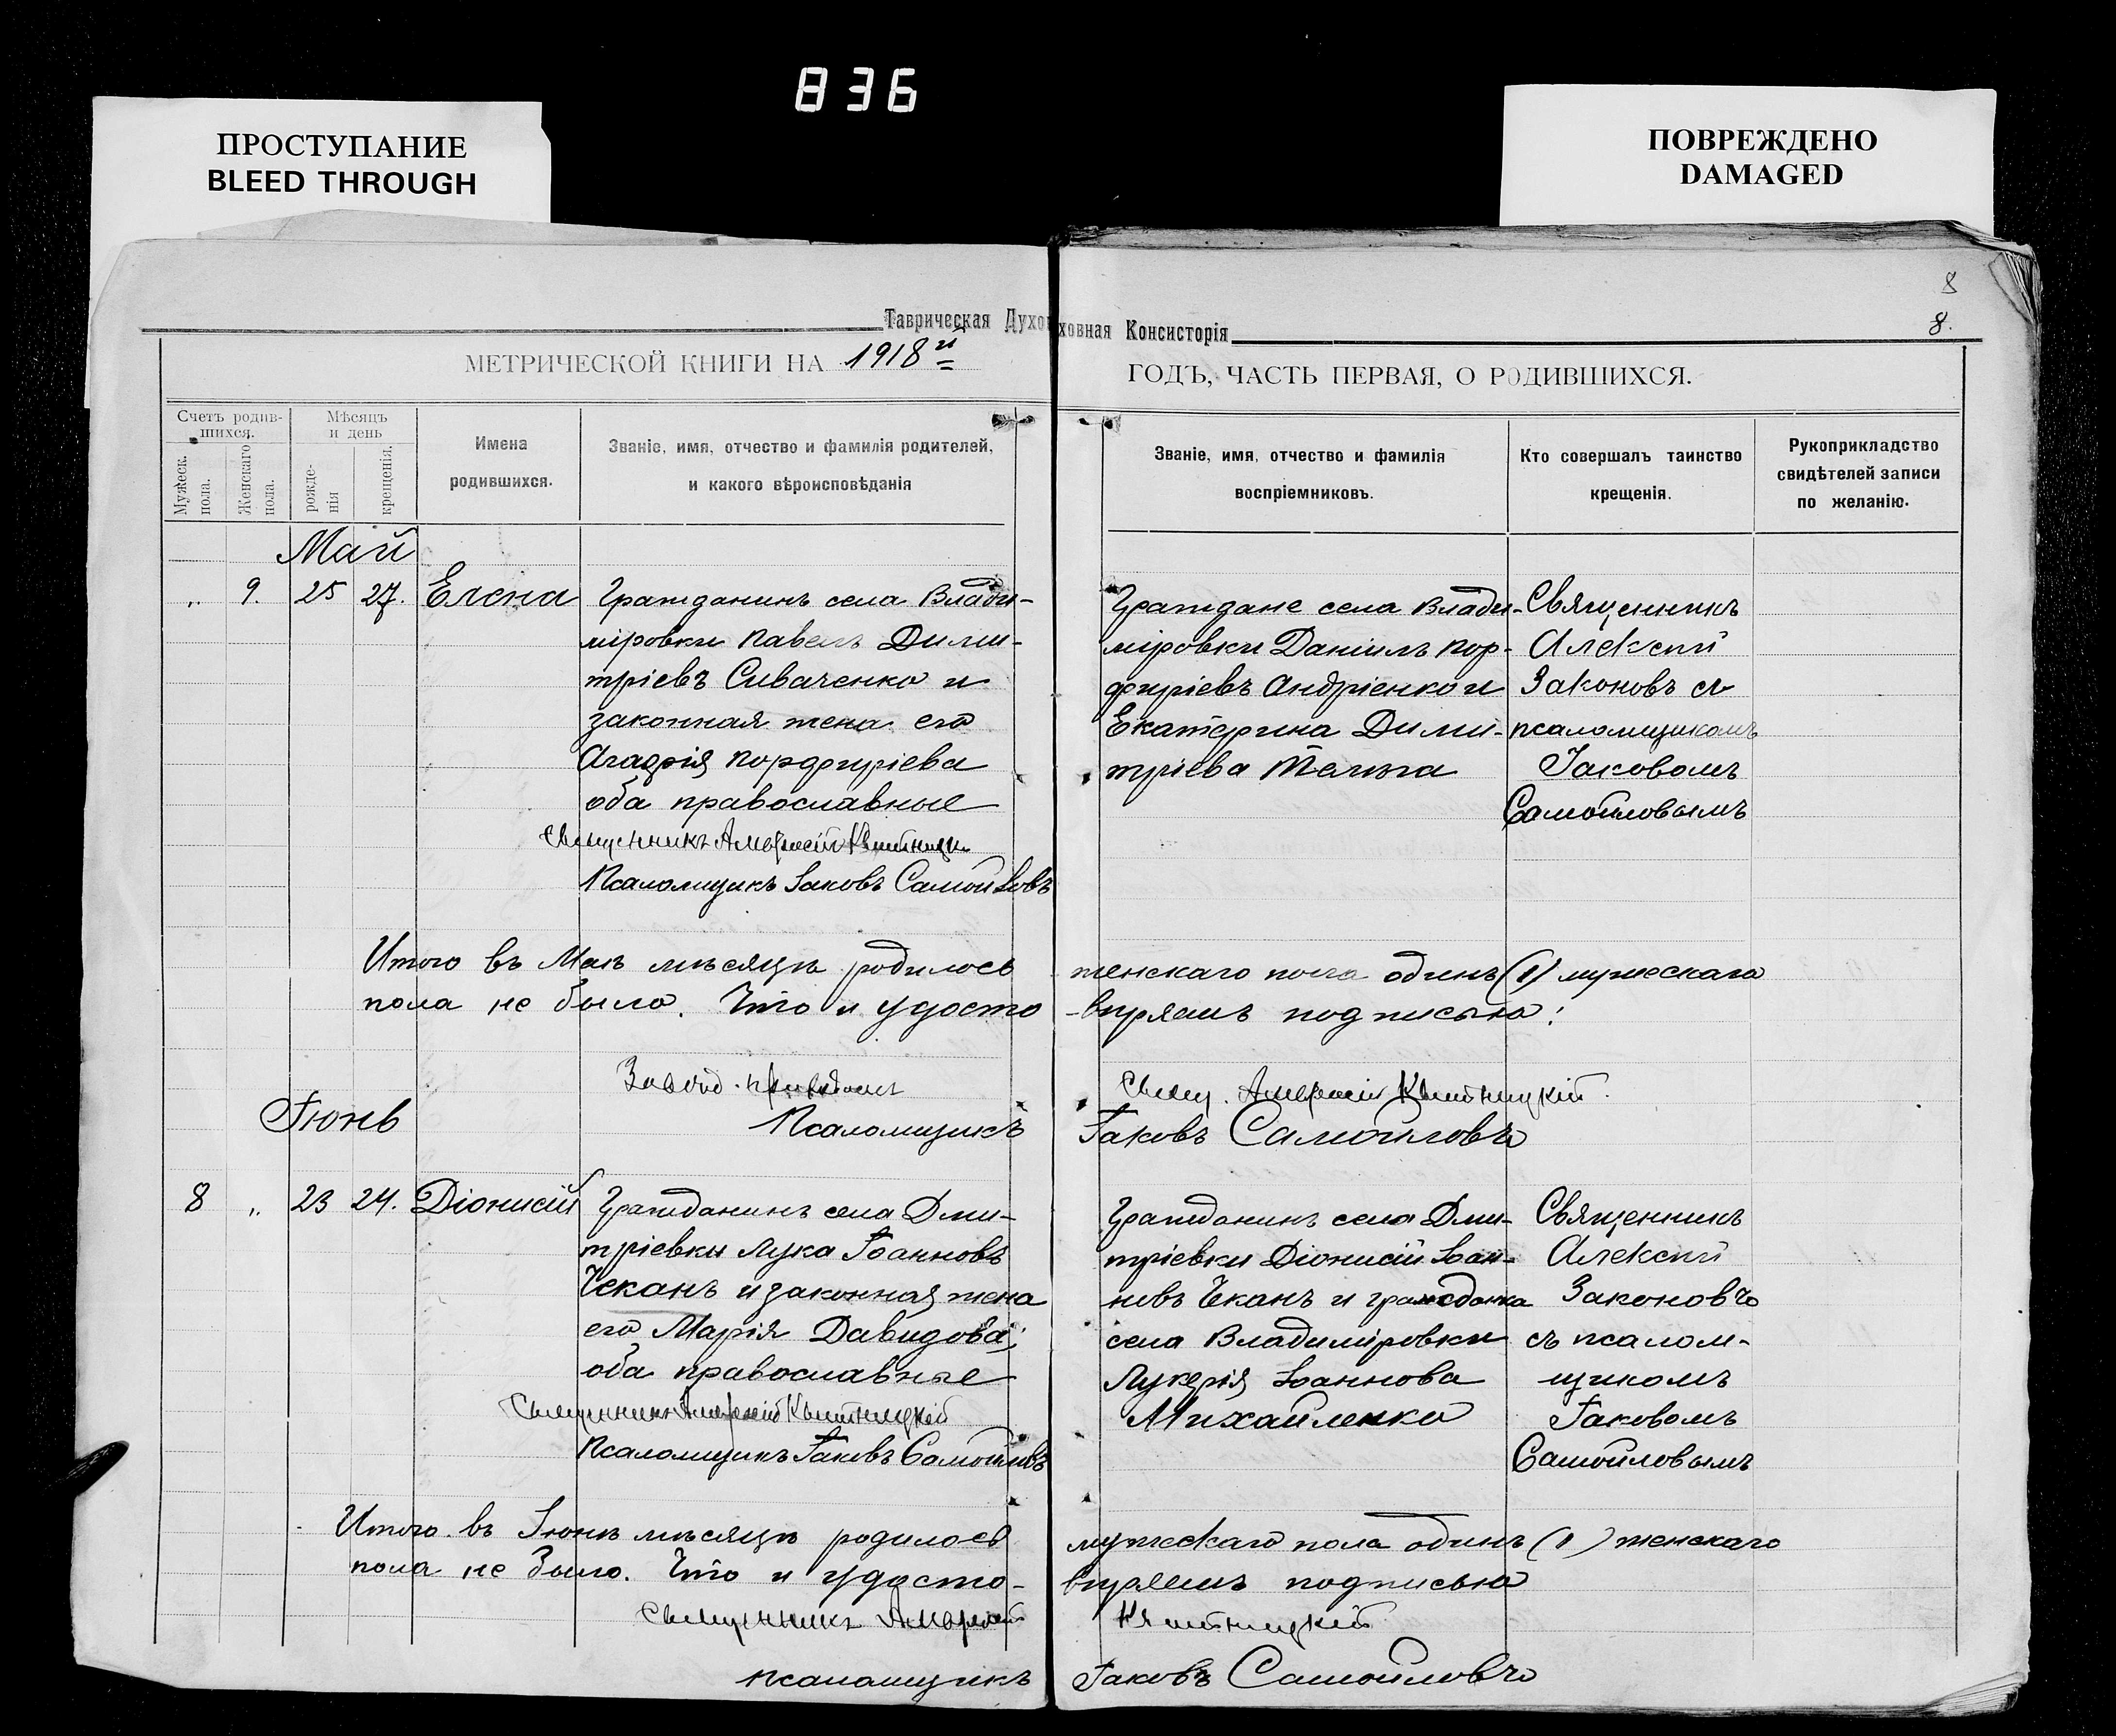 836
ПРОСТУПАНИЕ
BLEED THROUGH
ПОВРЕЖДЕНО
DAMAGED
8
8.
Таврическая Духовная Консисторія
МЕТРИЧЕСКОЙ КНИГИ НА 1918й
ГОДЪ, ЧАСТЬ ПЕРВАЯ, О РОДИВШИХСЯ.
Счетъ родив-
шихся.
Мужеск. пола.
Женскаго пола.
Мѣсяцъ
и день
рожде-
нія
крещенія.
Имена
родившихся.
Званіе, имя, отчество и фамилія родителей,
и какого вѣроисповѣданія
Званіе, имя, отчество и фамилія
воспріемниковъ.
Кто совершалъ таинство
крещенія.
Рукоприкладство
свидѣтелей записи
по желанію.
Май
„ 9. 25 27. Елена
Гражданинъ села Влади-
міровки Павелъ Дими-
тріевъ Сиваченко и
законная жена его
Агафія Порфиріева
оба православные
Священникъ Амвросій Квитницкій
Псаломщикъ Іаковъ Самойловъ
Граждане села Влади-
міровки Даніилъ Пор-
фиріевъ Андріенко и
Екатерина Дими-
тріева
Священникъ
Алексій
Законовъ съ
псаломщикомъ
Іаковомъ
Самойловымъ
Итого въ Маѣ мѣсяцѣ родилось женскаго пола одинъ (1) мужескаго
пола не было. Что и удосто-вѣряемъ подписью:
Свящ. Амвросій Квитницкій.
Псаломщикъ Іаковъ Самойловъ
Іюнь
8 „ 23 24. Діонисій
Гражданинъ села Дми-
тріевки Лука Іоанновъ
Чеканъ и законная жена
его Марія Давидова;
оба православные
Священникъ Амвросій Квитницкій
Псаломщикъ Іаковъ Самойловъ
Гражданинъ села Дми-
тріевки Діонисій Іоан-
новъ Чеканъ и гражданка
села Владиміровки
Лукерія Іоаннова
Михайленко
Священникъ
Алексій
Законовъ
съ псалом-
щикомъ
Іаковомъ
Самойловымъ
Итого въ Іюнѣ мѣсяцѣ родилось мужескаго пола одинъ (1) женскаго
пола не было. Что и удосто-вѣряемъ подписью
Священникъ Амвросій Квитницкій
Псаломщикъ Іаковъ Самойловъ